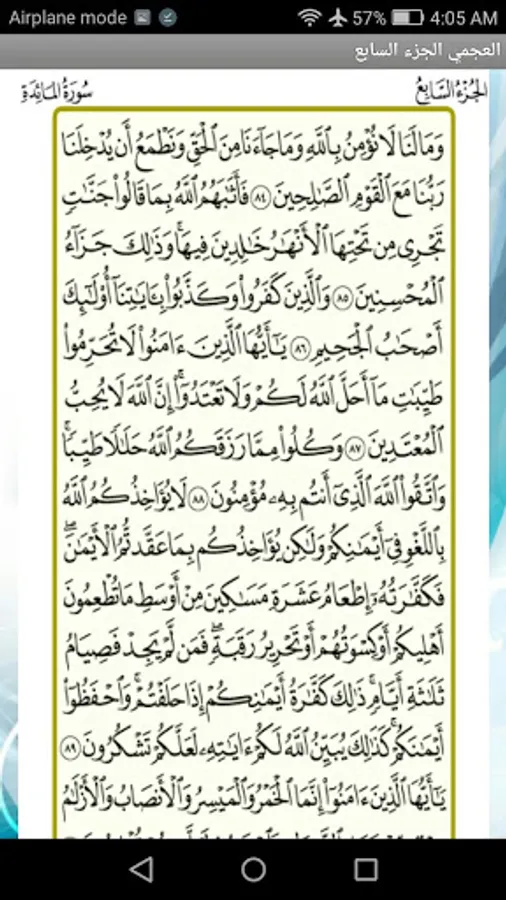 Airplane mode 57% 4:05 AM
العجمي الجزء السابع
الجُزْءُ السَّابِعُ سُورَةُ المَائِدَةِ
وَمَالَنَا لَا نُؤْمِنُ بِٱللَّهِ وَمَا جَآءَنَا مِنَ ٱلْحَقِّ وَنَطْمَعُ أَن يُدْخِلَنَا
رَبُّنَا مَعَ ٱلْقَوْمِ ٱلصَّٰلِحِينَ ٨٤ فَأَثَٰبَهُمُ ٱللَّهُ بِمَا قَالُوا۟ جَنَّٰتٍ
تَجْرِى مِن تَحْتِهَا ٱلْأَنْهَٰرُ خَٰلِدِينَ فِيهَا ۚ وَذَٰلِكَ جَزَآءُ
ٱلْمُحْسِنِينَ ٨٥ وَٱلَّذِينَ كَفَرُوا۟ وَكَذَّبُوا۟ بِـَٔايَٰتِنَآ أُو۟لَٰٓئِكَ
أَصْحَٰبُ ٱلْجَحِيمِ ٨٦ يَٰٓأَيُّهَا ٱلَّذِينَ ءَامَنُوا۟ لَا تُحَرِّمُوا۟
طَيِّبَٰتِ مَآ أَحَلَّ ٱللَّهُ لَكُمْ وَلَا تَعْتَدُوٓا۟ ۚ إِنَّ ٱللَّهَ لَا يُحِبُّ
ٱلْمُعْتَدِينَ ٨٧ وَكُلُوا۟ مِمَّا رَزَقَكُمُ ٱللَّهُ حَلَٰلًا طَيِّبًا ۚ
وَٱتَّقُوا۟ ٱللَّهَ ٱلَّذِىٓ أَنتُم بِهِۦ مُؤْمِنُونَ ٨٨ لَا يُؤَاخِذُكُمُ ٱللَّهُ
بِٱللَّغْوِ فِىٓ أَيْمَٰنِكُمْ وَلَٰكِن يُؤَاخِذُكُم بِمَا عَقَّدتُّمُ ٱلْأَيْمَٰنَ ۖ
فَكَفَّٰرَتُهُۥٓ إِطْعَامُ عَشَرَةِ مَسَٰكِينَ مِنْ أَوْسَطِ مَا تُطْعِمُونَ
أَهْلِيكُمْ أَوْ كِسْوَتُهُمْ أَوْ تَحْرِيرُ رَقَبَةٍ ۖ فَمَن لَّمْ يَجِدْ فَصِيَامُ
ثَلَٰثَةِ أَيَّامٍ ۚ ذَٰلِكَ كَفَّٰرَةُ أَيْمَٰنِكُمْ إِذَا حَلَفْتُمْ ۚ وَٱحْفَظُوٓا۟
أَيْمَٰنَكُمْ ۚ كَذَٰلِكَ يُبَيِّنُ ٱللَّهُ لَكُمْ ءَايَٰتِهِۦ لَعَلَّكُمْ تَشْكُرُونَ ٨٩
يَٰٓأَيُّهَا ٱلَّذِينَ ءَامَنُوٓا۟ إِنَّمَا ٱلْخَمْرُ وَٱلْمَيْسِرُ وَٱلْأَنصَابُ وَٱلْأَزْلَٰمُ